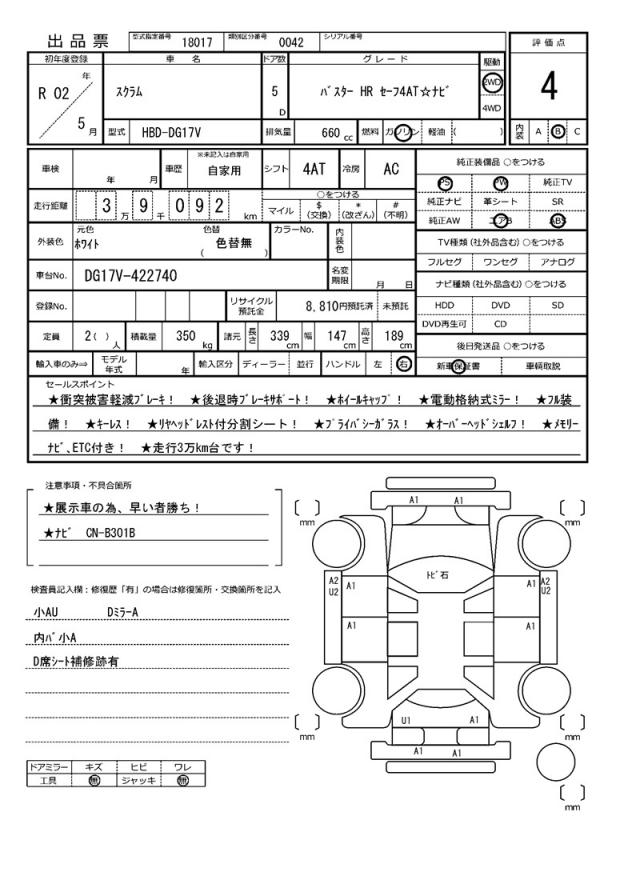 出品票 型式指定番号 18017 類別区分番号 0042 シリアル番号
評価点
4
内装 A B C
初年度登録 車名 ドア数 グレード 駆動
R 02 年 5 月
スクラム
5 D
バスター HR セーフ4AT☆ナビ
2WD
4WD
型式 HBD-DG17V 排気量 660 cc 燃料 ガソリン 軽油 ( )
車検 年 月 車歴 ※未記入は自家用 自家用 シフト 4AT 冷房 AC
走行距離 3 万 9 千 0 9 2 km
○をつける
マイル $ (交換) * (改ざん) # (不明)
外装色 元色 ホワイト 色替 色替無 ( ) カラーNo. 内装色
車台No. DG17V-422740 名変期限 月 日
登録No. リサイクル預託金 8,810円預託済 未預託
定員 2( ) 人 積載量 350 kg 諸元 長さ 339 cm 幅 147 cm 高さ 189 cm
輸入車のみ⇒ モデル年式 年 輸入区分 ディーラー 並行 ハンドル 左 右
純正装備品 ○をつける
PS PW 純正TV
純正ナビ 革シート SR
純正AW エアB ABS
TV種類 (社外品含む) ○をつける
フルセグ ワンセグ アナログ
ナビ種類 (社外品含む) ○をつける
HDD DVD SD
DVD再生可 CD
後日発送品 ○をつける
新車保証書 車輌取説
セールスポイント
★衝突被害軽減ブレーキ! ★後退時ブレーキサポート! ★ホイールキャップ! ★電動格納式ミラー! ★フル装
備! ★キーレス! ★リヤヘッドレスト付分割シート! ★プライバシーガラス! ★オーバーヘッドシェルフ! ★メモリー
ナビ、ETC付き! ★走行3万km台です!
注意事項・不具合箇所
★展示車の為、早い者勝ち!
★ナビ CN-B301B
検査員記入欄:修復歴「有」の場合は修復箇所・交換箇所を記入
小AU DミラーA
内バ小A
D席シート補修跡有
ドアミラー キズ ヒビ ワレ
工具 無 ジャッキ 無
A1 A1
mm mm
トビ石
A2 U2 A1 A1 A2 U2
A1 A1
U1 A1
mm mm
A1 A1
mm